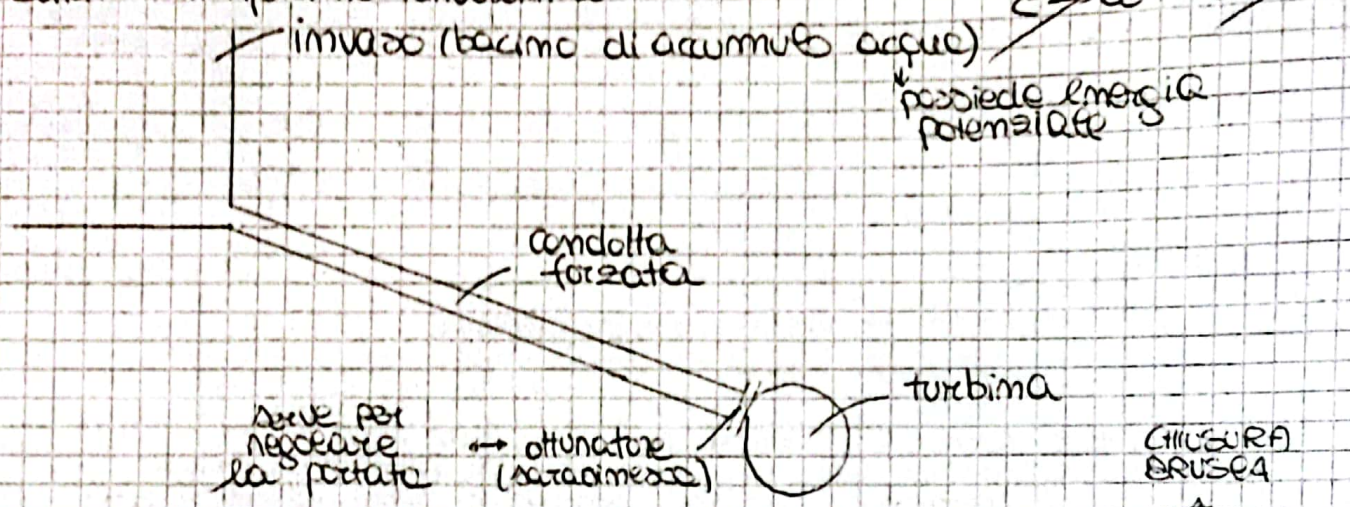 invaso (bacino di accumulo acqua)
possiede energia
potenziale
condotta
forzata
turbina
serve per
regolare
la portata
↔ otturatore
(saracinesca)
CHIUSURA
BRUSCA